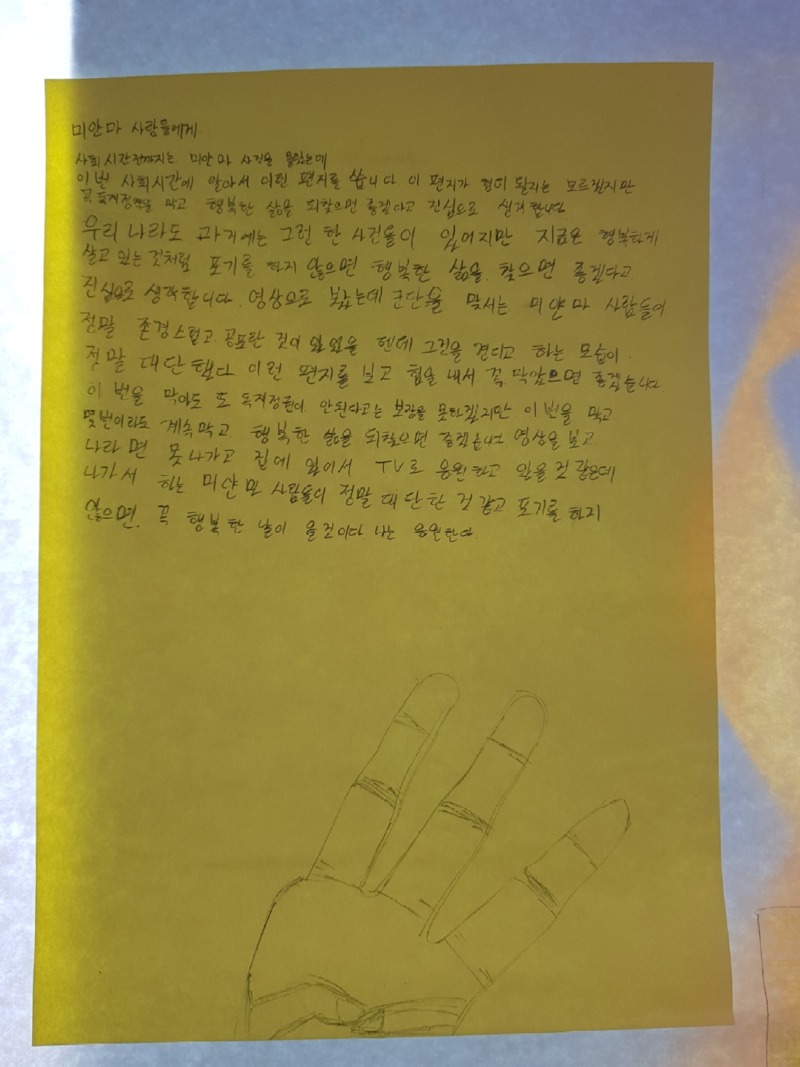 미얀마 사람들에게
사회 시간 전까지는 미얀마 사건을 몰랐는데
이번 사회시간에 알아서 이런 편지를 씁니다 이 편지가 힘이 될지는 모르겠지만
꼭 독재정권을 막고 행복한 삶을 되찾으면 좋겠다고 진심으로 생각합니다
우리 나라도 과거에는 그런 한 사건들이 있어지만 지금은 행복하게
살고 있는 것처럼 포기를 하지 않으면 행복한 삶을 찾으면 좋겠다고
진심으로 생각합니다. 영상으로 봤는데 군단을 맞서는 미얀마 사람들이
정말 존경스럽고. 공포란 것이 있었을 텐데 그것을 견디고 하는 모습이
정말 대단했다 이런 편지를 보고 힘을 내서 꼭 막았으면 좋겠습니다
이 번을 막아도 또 독재정권이 안된다고는 보장을 못하겠지만 이 번을 막고
몇번이라도 계속 막고 행복한 삶을 되찾으면 좋겠습니다 영상을 보고
나라면 못 나가고 집에 있어서 TV로 응원하고 있을 것 같은데
나가서 하는 미얀마 사람들이 정말 대단한 것 같고 포기를 하지
않으면. 꼭 행복한 날이 올 것이다. 나는 응원한다.